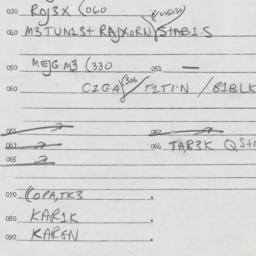 030 ROJ3X (060
040 M3TUNIST RAJXORN/STAB1S
050 MEJGM3 (330 051 —
060 CIGA/T1T1N /B1BLK
061 062
063 064 TAB3K QSTR
065
070 (OPA,TK3 .
080 KAR1K .
090 KAREN .